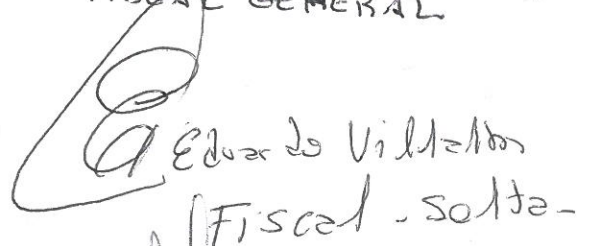 FISCAL GENERAL
Eduardo Villalba
Fiscal - Salta -